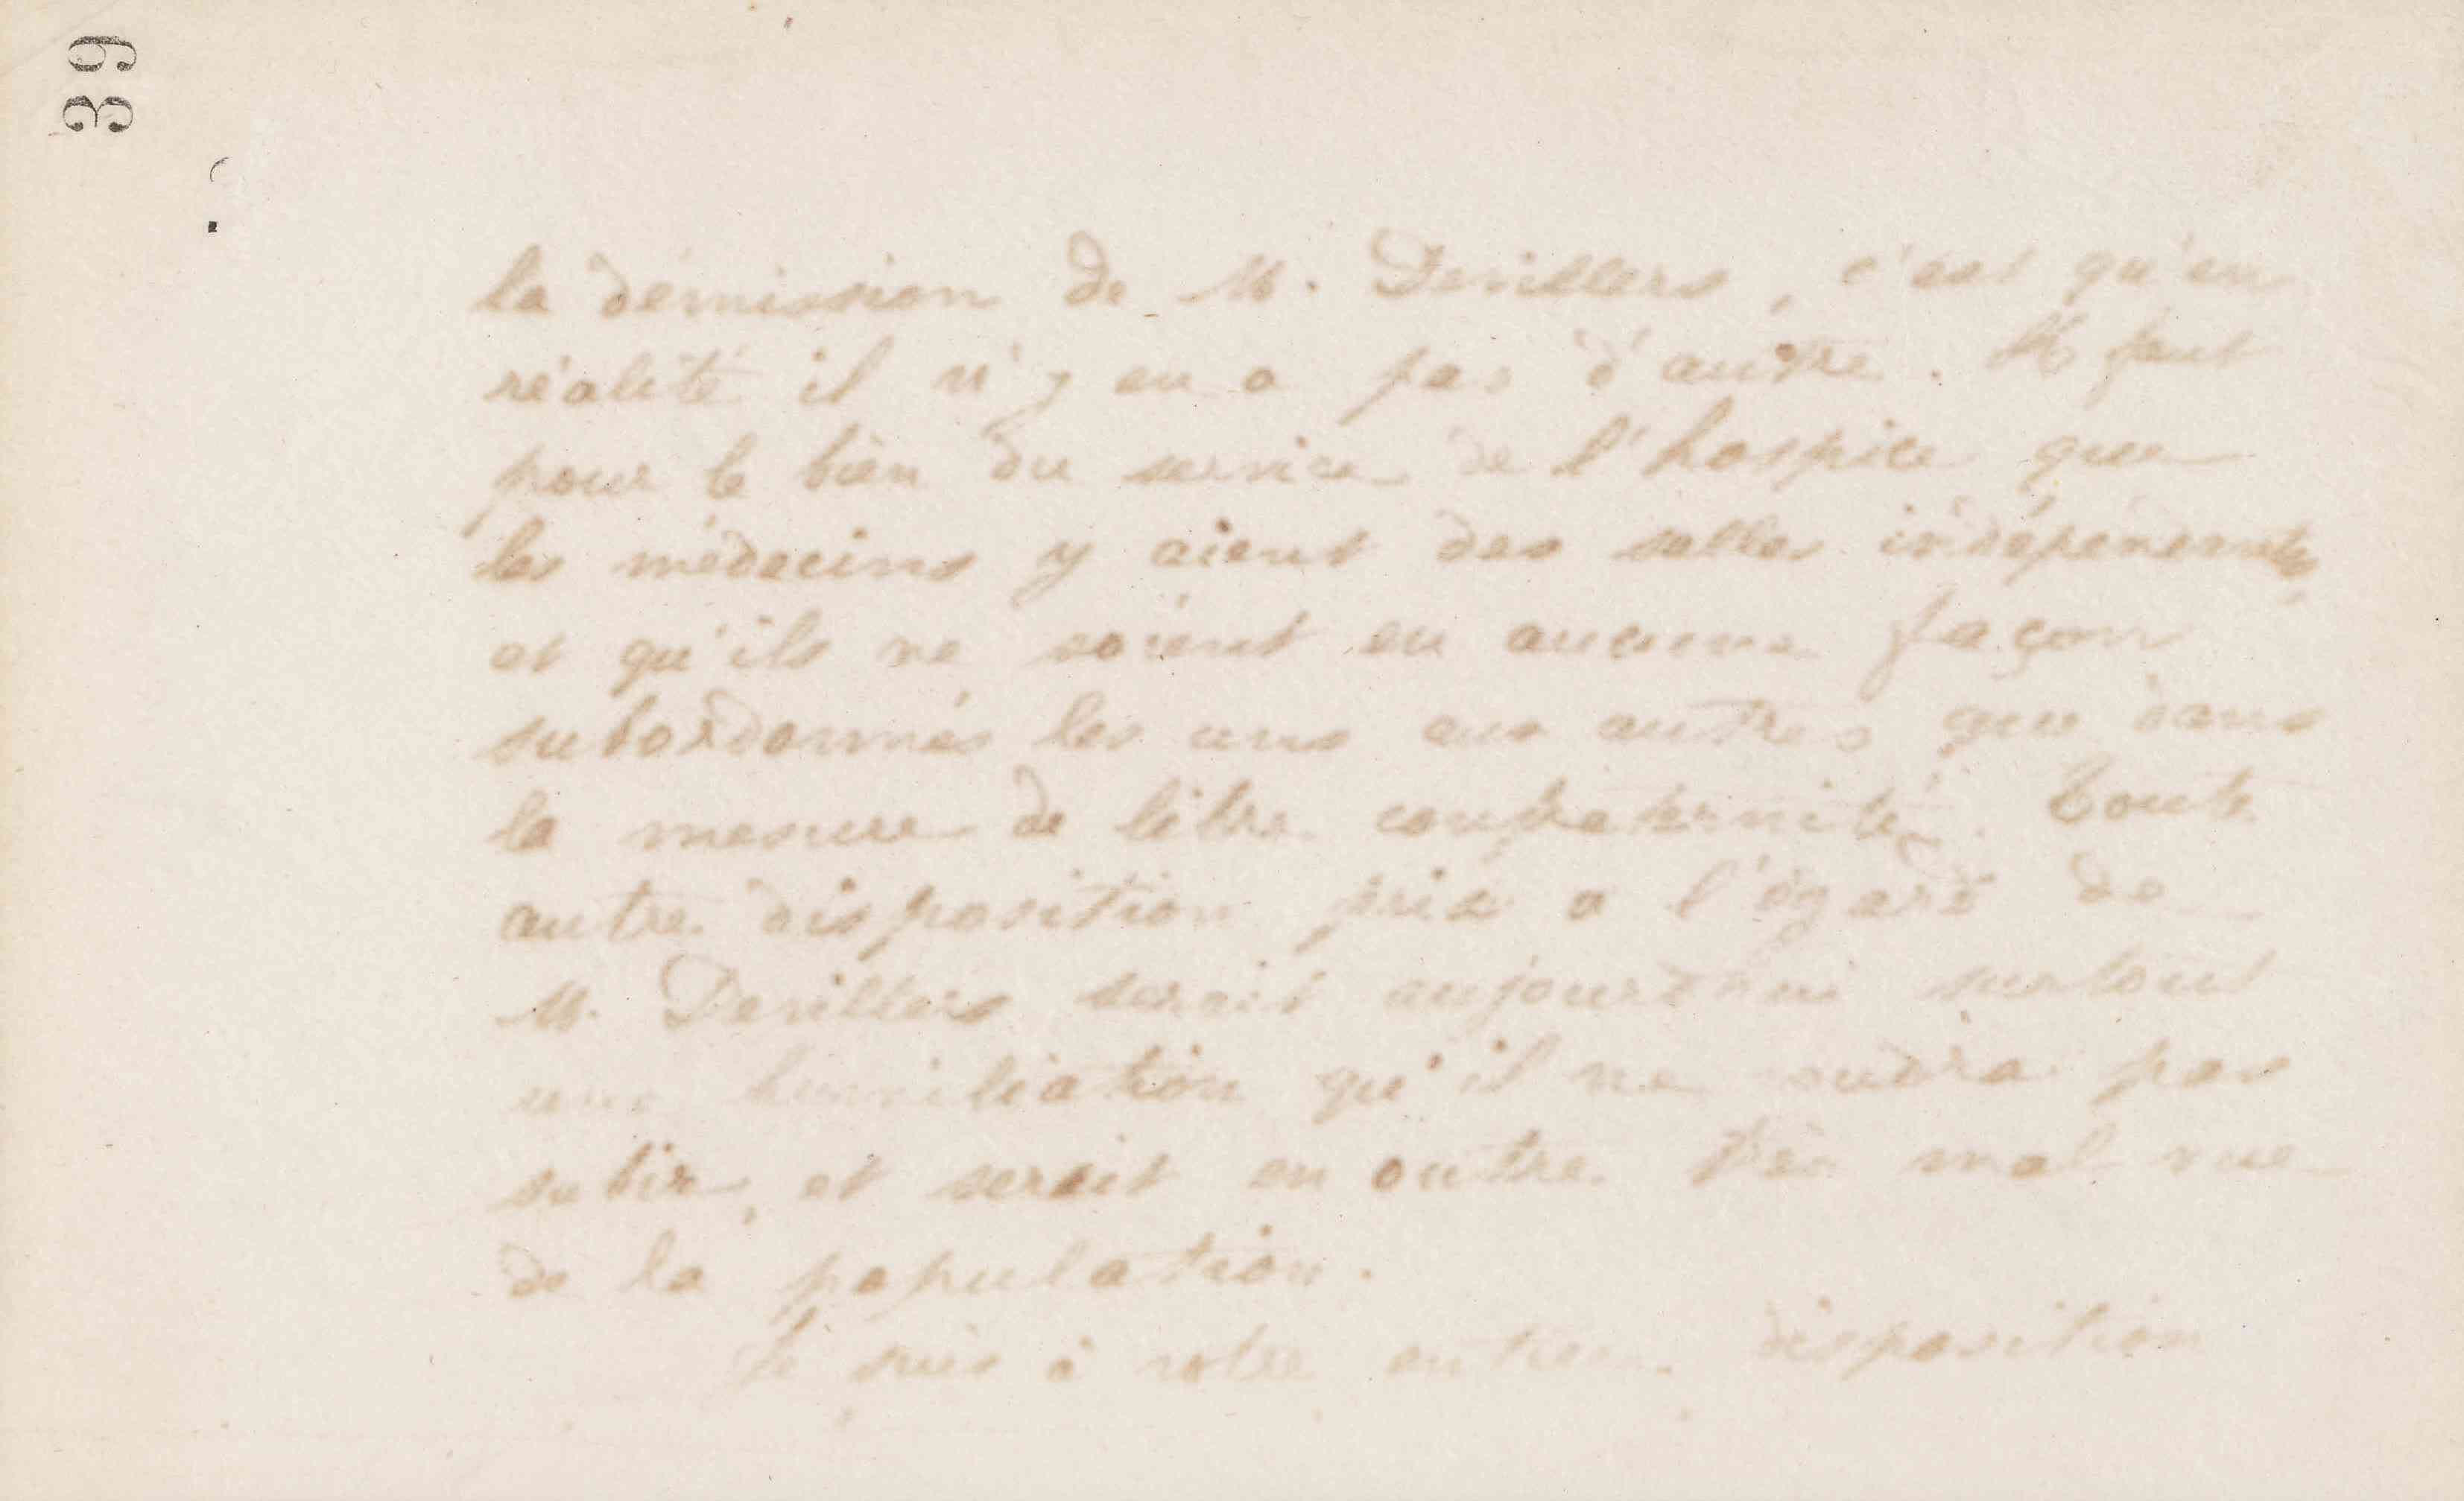 39
la démission de M. Devillers, c'est qu'en
réalité il n'y en a pas d'autre. Il faut
pour le bien du service de l'hospice que
les médecins y aient des salles indépendantes
et qu'ils ne soient en aucune façon
subordonnés les uns aux autres que dans
la mesure de libre confraternité. Toute
autre disposition prise à l'égard de
M. Devillers serait aujourd'hui surtout
une humiliation qu'il ne voudra pas
subir, et serait en outre très mal vue
de la population.
Je suis à votre entière disposition